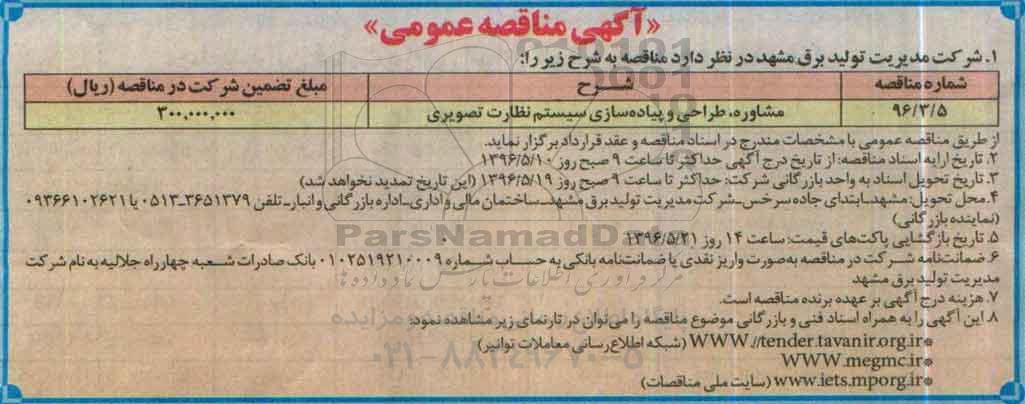 «آگهی مناقصه عمومی»
۱. شرکت مدیریت تولید برق مشهد در نظر دارد مناقصه به شرح زیر را:
شماره مناقصه شـــرح مبلغ تضمین شرکت در مناقصه (ریال)
۹۶/۳/۵ مشاوره، طراحی و پیاده‌سازی سیستم نظارت تصویری ۳۰۰,۰۰۰,۰۰۰
از طریق مناقصه عمومی با مشخصات مندرج در اسناد مناقصه و عقد قرارداد برگزار نماید.
۲. تاریخ ارایه اسناد مناقصه: از تاریخ درج آگهی حداکثر تا ساعت ۹ صبح روز ۱۳۹۶/۵/۱۰
۳. تاریخ تحویل اسناد به واحد بازرگانی شرکت: حداکثر تا ساعت ۹ صبح روز ۱۳۹۶/۵/۱۹ (این تاریخ تمدید نخواهد شد)
۴. محل تحویل: مشهد-ابتدای جاده سرخس-شرکت مدیریت تولید برق مشهد-ساختمان مالی و اداری-اداره بازرگانی و انبار-تلفن ۳۶۵۱۳۷۹-۰۵۱۳ یا ۰۹۳۶۶۱۰۲۶۲۱
(نماینده بازرگانی)
۵. تاریخ بازگشایی پاکت‌های قیمت: ساعت ۱۴ روز ۱۳۹۶/۵/۲۱
۶. ضمانت‌نامه شرکت در مناقصه به‌صورت واریز نقدی یا ضمانت‌نامه بانکی به حساب شماره ۰۱۰۲۵۱۹۲۱۰۰۰۹ بانک صادرات شعبه چهارراه جلالیه به نام شرکت
مدیریت تولید برق مشهد
۷. هزینه درج آگهی بر عهده برنده مناقصه است.
۸. این آگهی را به همراه اسناد فنی و بازرگانی موضوع مناقصه را می‌توان در تارنمای زیر مشاهده نمود:
*WWW.//tender.tavanir.org.ir (شبکه اطلاع‌رسانی معاملات توانیر)
*WWW.megmc.ir
*www.iets.mporg.ir (سایت ملی مناقصات)
ParsNamadData
مرکز فرآوری اطلاعات پارس نماد داده ها